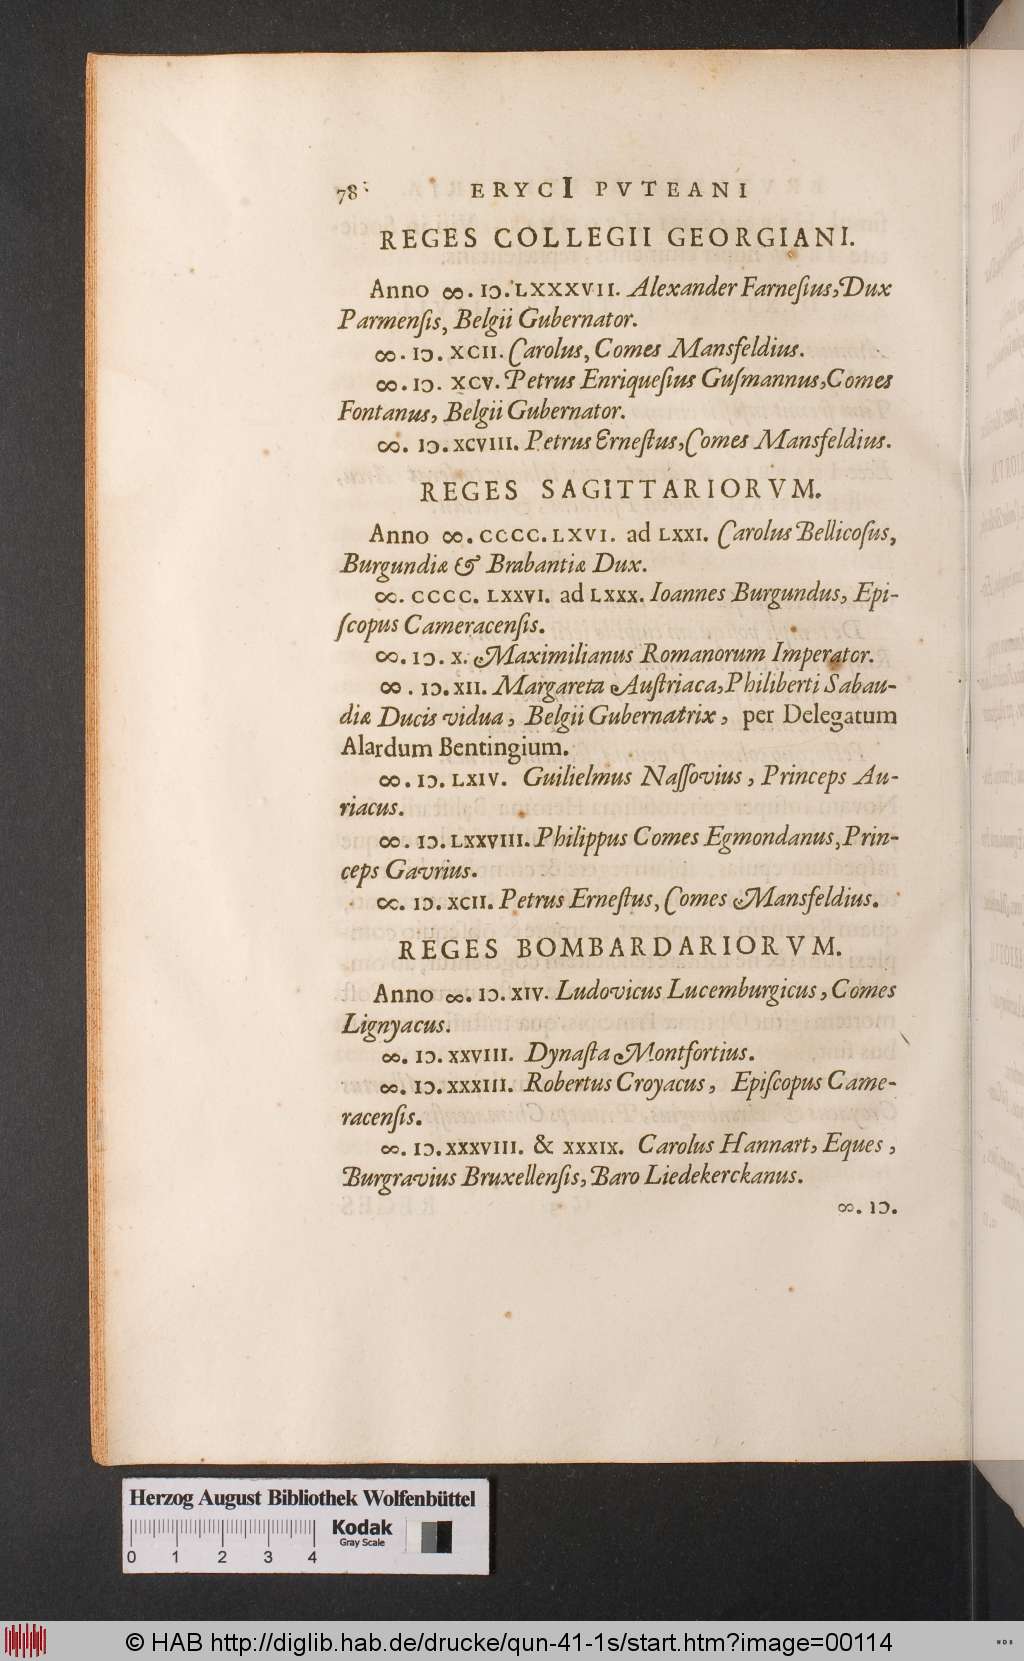 78 ERYCI PVTEANI
REGES COLLEGII GEORGIANI.
Anno ∞. IↃ. LXXXVII. Alexander Farneſius, Dux
Parmenſis, Belgii Gubernator.
∞. IↃ. XCII. Carolus, Comes Mansfeldius.
∞. IↃ. XCV. Petrus Enriqueſius Guſmannus, Comes
Fontanus, Belgii Gubernator.
∞. IↃ. XCVIII. Petrus Erneſtus, Comes Mansfeldius.
REGES SAGITTARIORVM.
Anno ∞. CCCC. LXVI. ad LXXI. Carolus Bellicoſus,
Burgundiæ & Brabantiæ Dux.
∞. CCCC. LXXVI. ad LXXX. Ioannes Burgundus, Epi-
ſcopus Cameracenſis.
∞. IↃ. X. Maximilianus Romanorum Imperator.
∞. IↃ. XII. Margareta Auſtriaca, Philiberti Sabau-
diæ Ducis vidua, Belgii Gubernatrix, per Delegatum
Alardum Bentingium.
∞. IↃ. LXIV. Guilielmus Naſſovius, Princeps Au-
riacus.
∞. IↃ. LXXVIII. Philippus Comes Egmondanus, Prin-
ceps Gavrius.
∞. IↃ. XCII. Petrus Erneſtus, Comes Mansfeldius.
REGES BOMBARDARIORVM.
Anno ∞. IↃ. XIV. Ludovicus Lucemburgicus, Comes
Lignyacus.
∞. IↃ. XXVIII. Dynaſta Montfortius.
∞. IↃ. XXXIII. Robertus Croyacus, Epiſcopus Came-
racenſis.
∞. IↃ. XXXVIII. & XXXIX. Carolus Hannart, Eques,
Burgravius Bruxellenſis, Baro Liedekerckanus.
∞. IↃ.
Herzog August Bibliothek Wolfenbüttel
Kodak
Gray Scale
0 1 2 3 4
© HAB http://diglib.hab.de/drucke/qun-41-1s/start.htm?image=00114